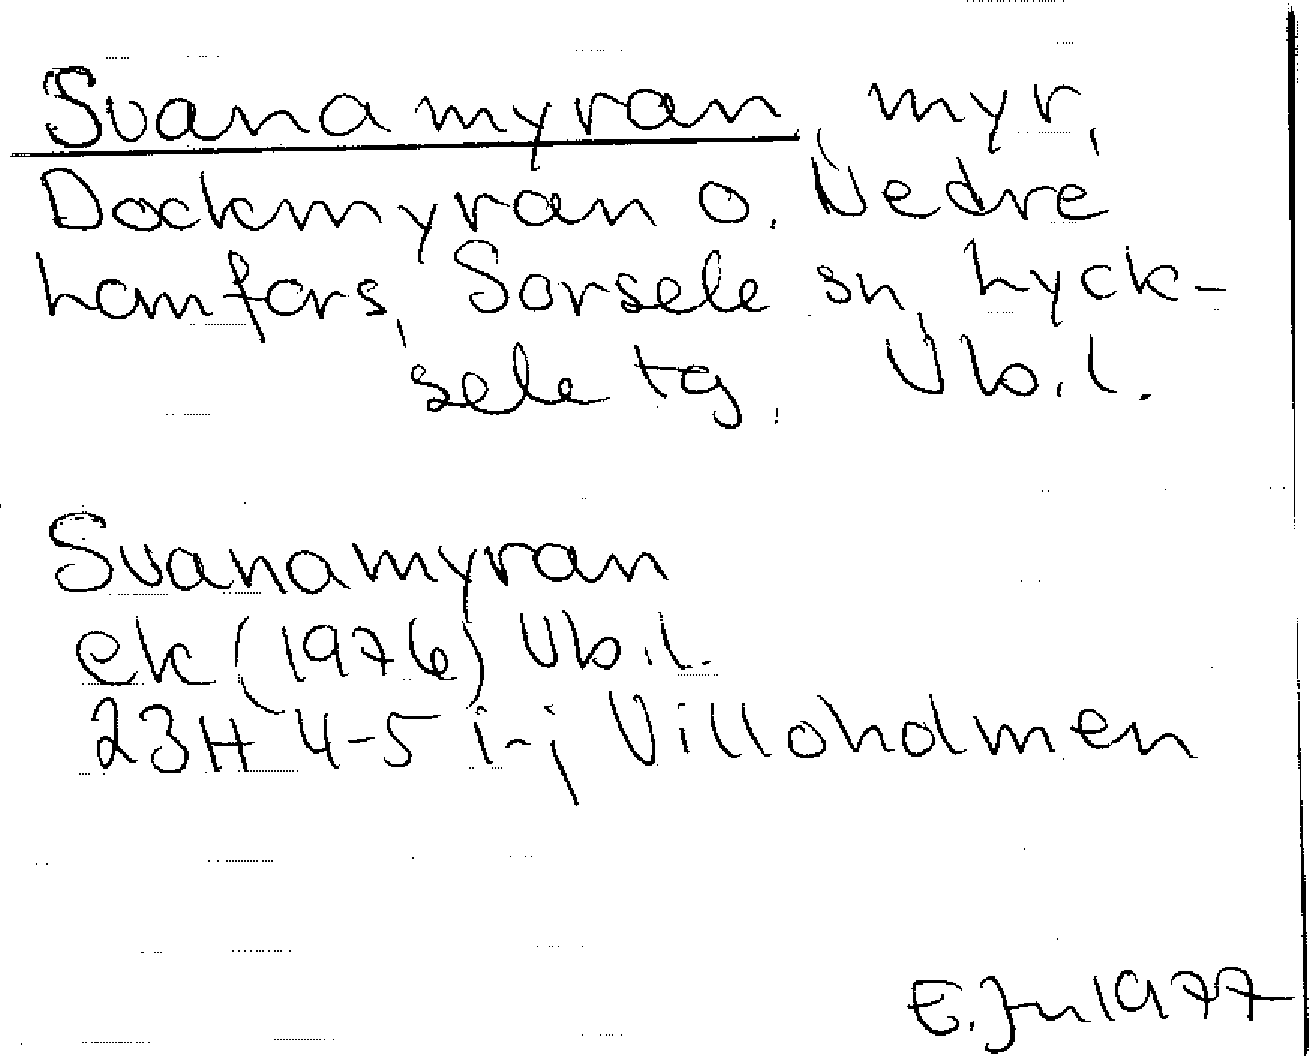 Svanamyran, myr,
Dockmyran o. Nedre
Lomfors, Sorsele sn, Lyck-
sele tg, Vb.l.
Svanamyran
ek (1976) Vb.l.
23H 4-5 i-j Villoholmen
E.Jn 1977